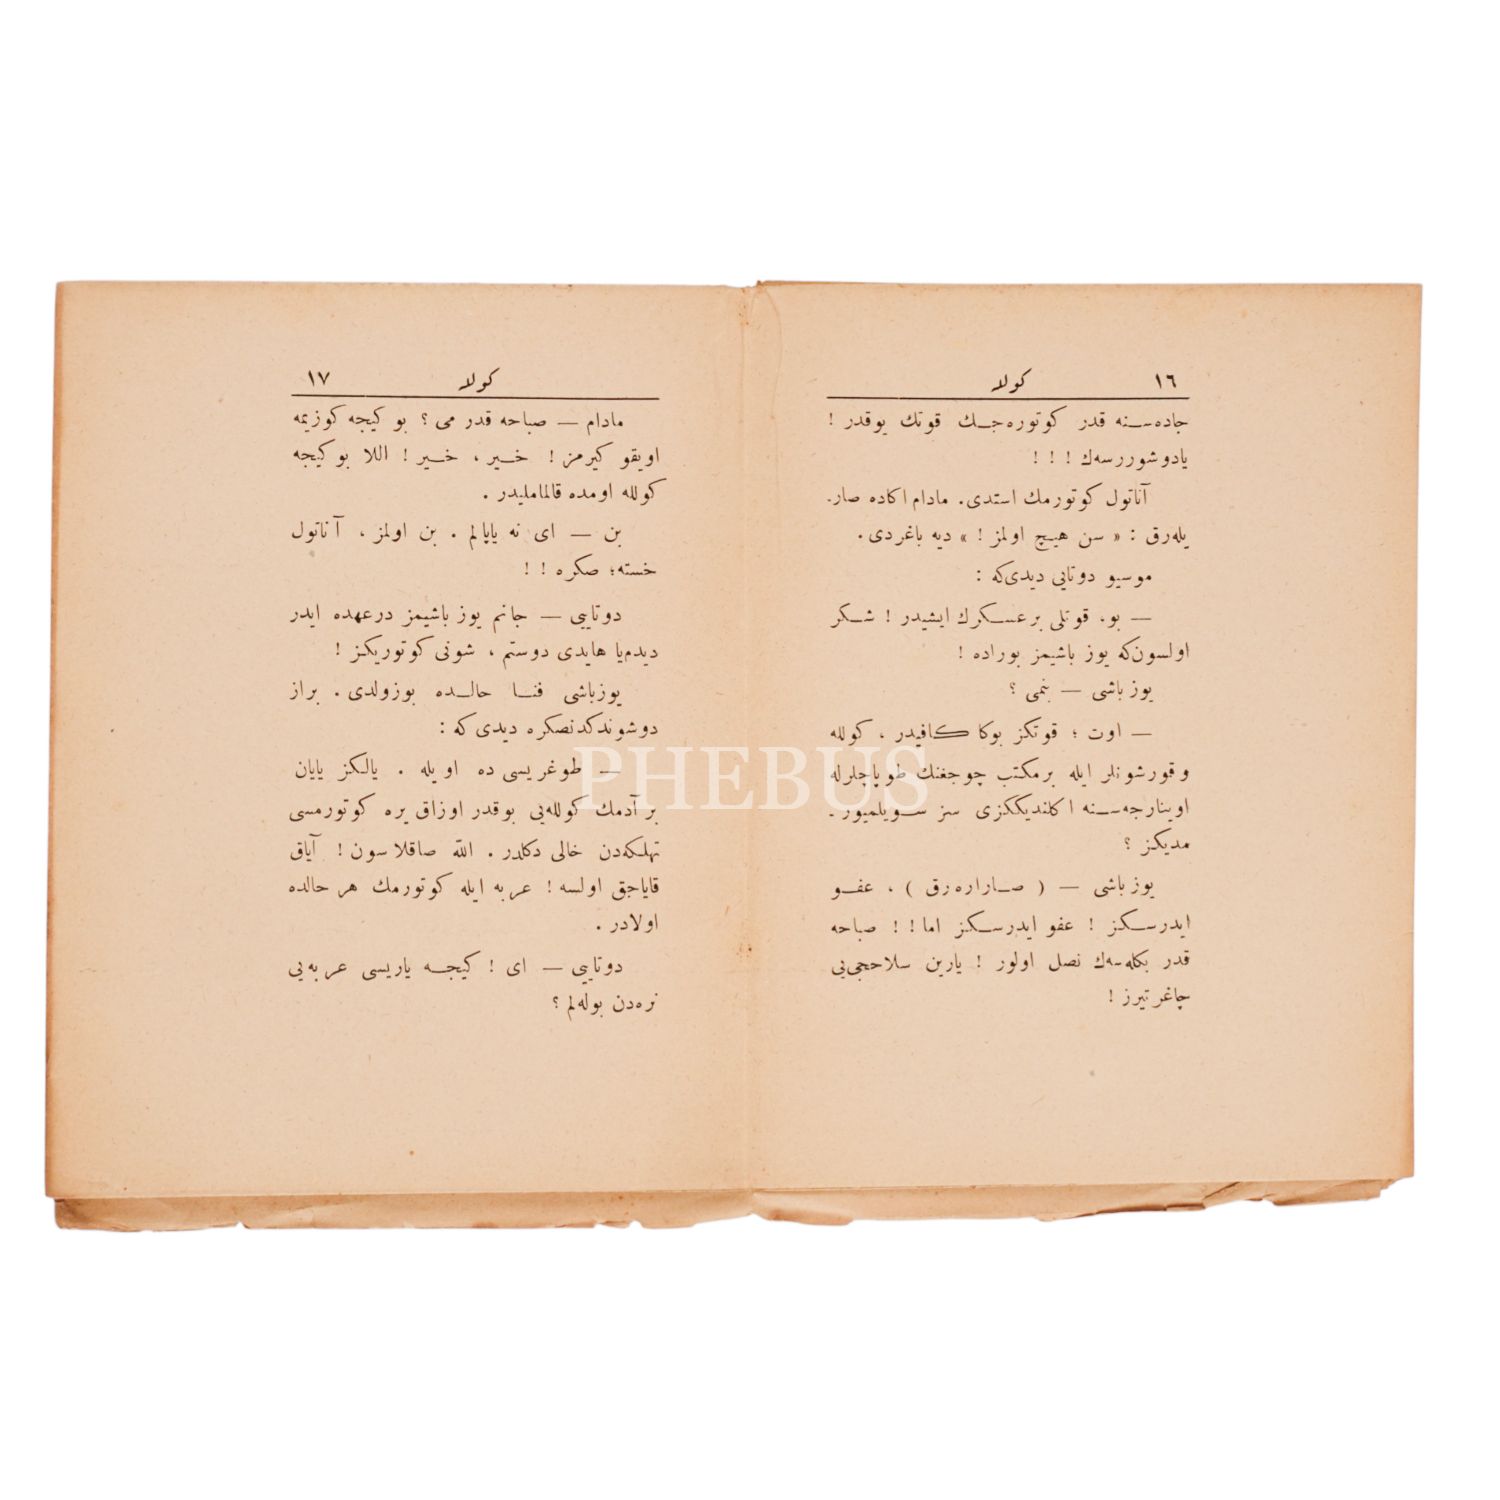 ١٦ كولله
جاده‌سنه قدر كوتوره‌جك قوتك يوقدر !
يادوشوررسه‌ك ! ! !
آناتول كوتورمك استدى. مادام اكاده صار-
يله‌رق : « سن هيچ اولمز ! » ديه باغردى.
موسيو دوتايى ديدى‌كه :
— بو، قوتلى برعسكرك ايشيدر ! شكر
اولسون‌كه يوز باشيمز بوراده !
يوز باشى — بنمى ؟
— اوت ؛ قوتكز بوكا كافيدر ، كولله
وقورشونلر ايله برمكتب چوجغنك طوپاچلرله
اوينارجه‌سنه اكلنديككزى سز سويلميور-
مديكز ؟
يوز باشى — ( صاراره‌رق ) ، عفو
ايدرسكز ! عفو ايدرسكز اما ! ! صباحه
قدر بكله‌سه‌ك نصل اولور ! يارين سلاحجى‌يى
چاغرتيرز !
كولله ١٧
مادام — صباحه قدر مى ؟ بو كيجه كوزيمه
اويقو كيرمز ! خير ، خير ! اللا بو كيجه
كولله اومده قالماملیدر .
بن — اى نه ياپالم . بن اولمز ، آناتول
خسته ؛ صكره ! !
دوتايى — جانم يوز باشيمز درعهده ايدر
ديدم‌يا هايدى دوستم ، شونى كوتوريكز !
يوزباشى فنا حالده بوزولدى . براز
دوشوندكدنصكره ديدى كه :
— طوغريسى ده اويله . يالكز يايان
برآدمك كولله‌يى بوقدر اوزاق يره كوتورمسى
تهلكه‌دن خالى دكلدر . الله صاقلاسون ! آياق
قاياجق اولسه ! عربه ايله كوتورمك هر حالده
اولادر .
دوتايى — اى ! كيجه ياريسى عربه‌يى
نره‌دن بوله‌لم ؟
PHEBUS